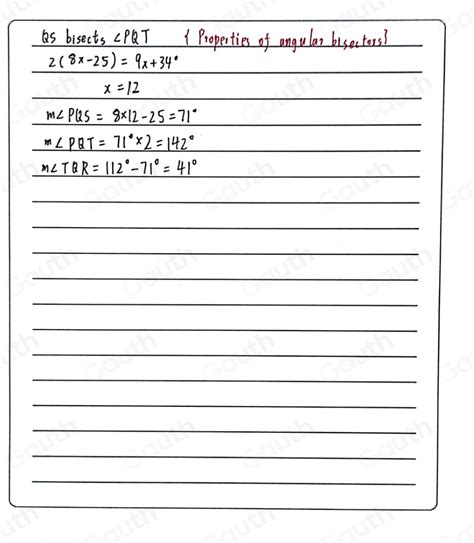 QS bisects ∠PQT { Properties of angular bisectors}
2(8x-25) = 9x+34°
x=12
m∠PQS = 8×12-25=71°
m∠PQT = 71°×2=142°
m∠TQR = 112°-71° = 41°
Gauth